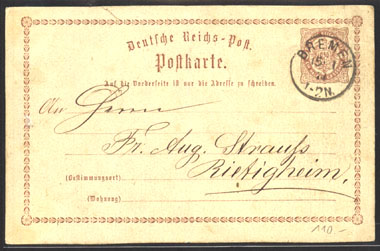 Deutsche Reichs-Post.
Postkarte.
BREMEN
1-2N.
Auf die Vorderseite ist nur die Adresse zu schreiben.
An Herrn
Fr. Aug. Strauss
Bietigheim,
(Bestimmungsort)
(Wohnung)
110.-